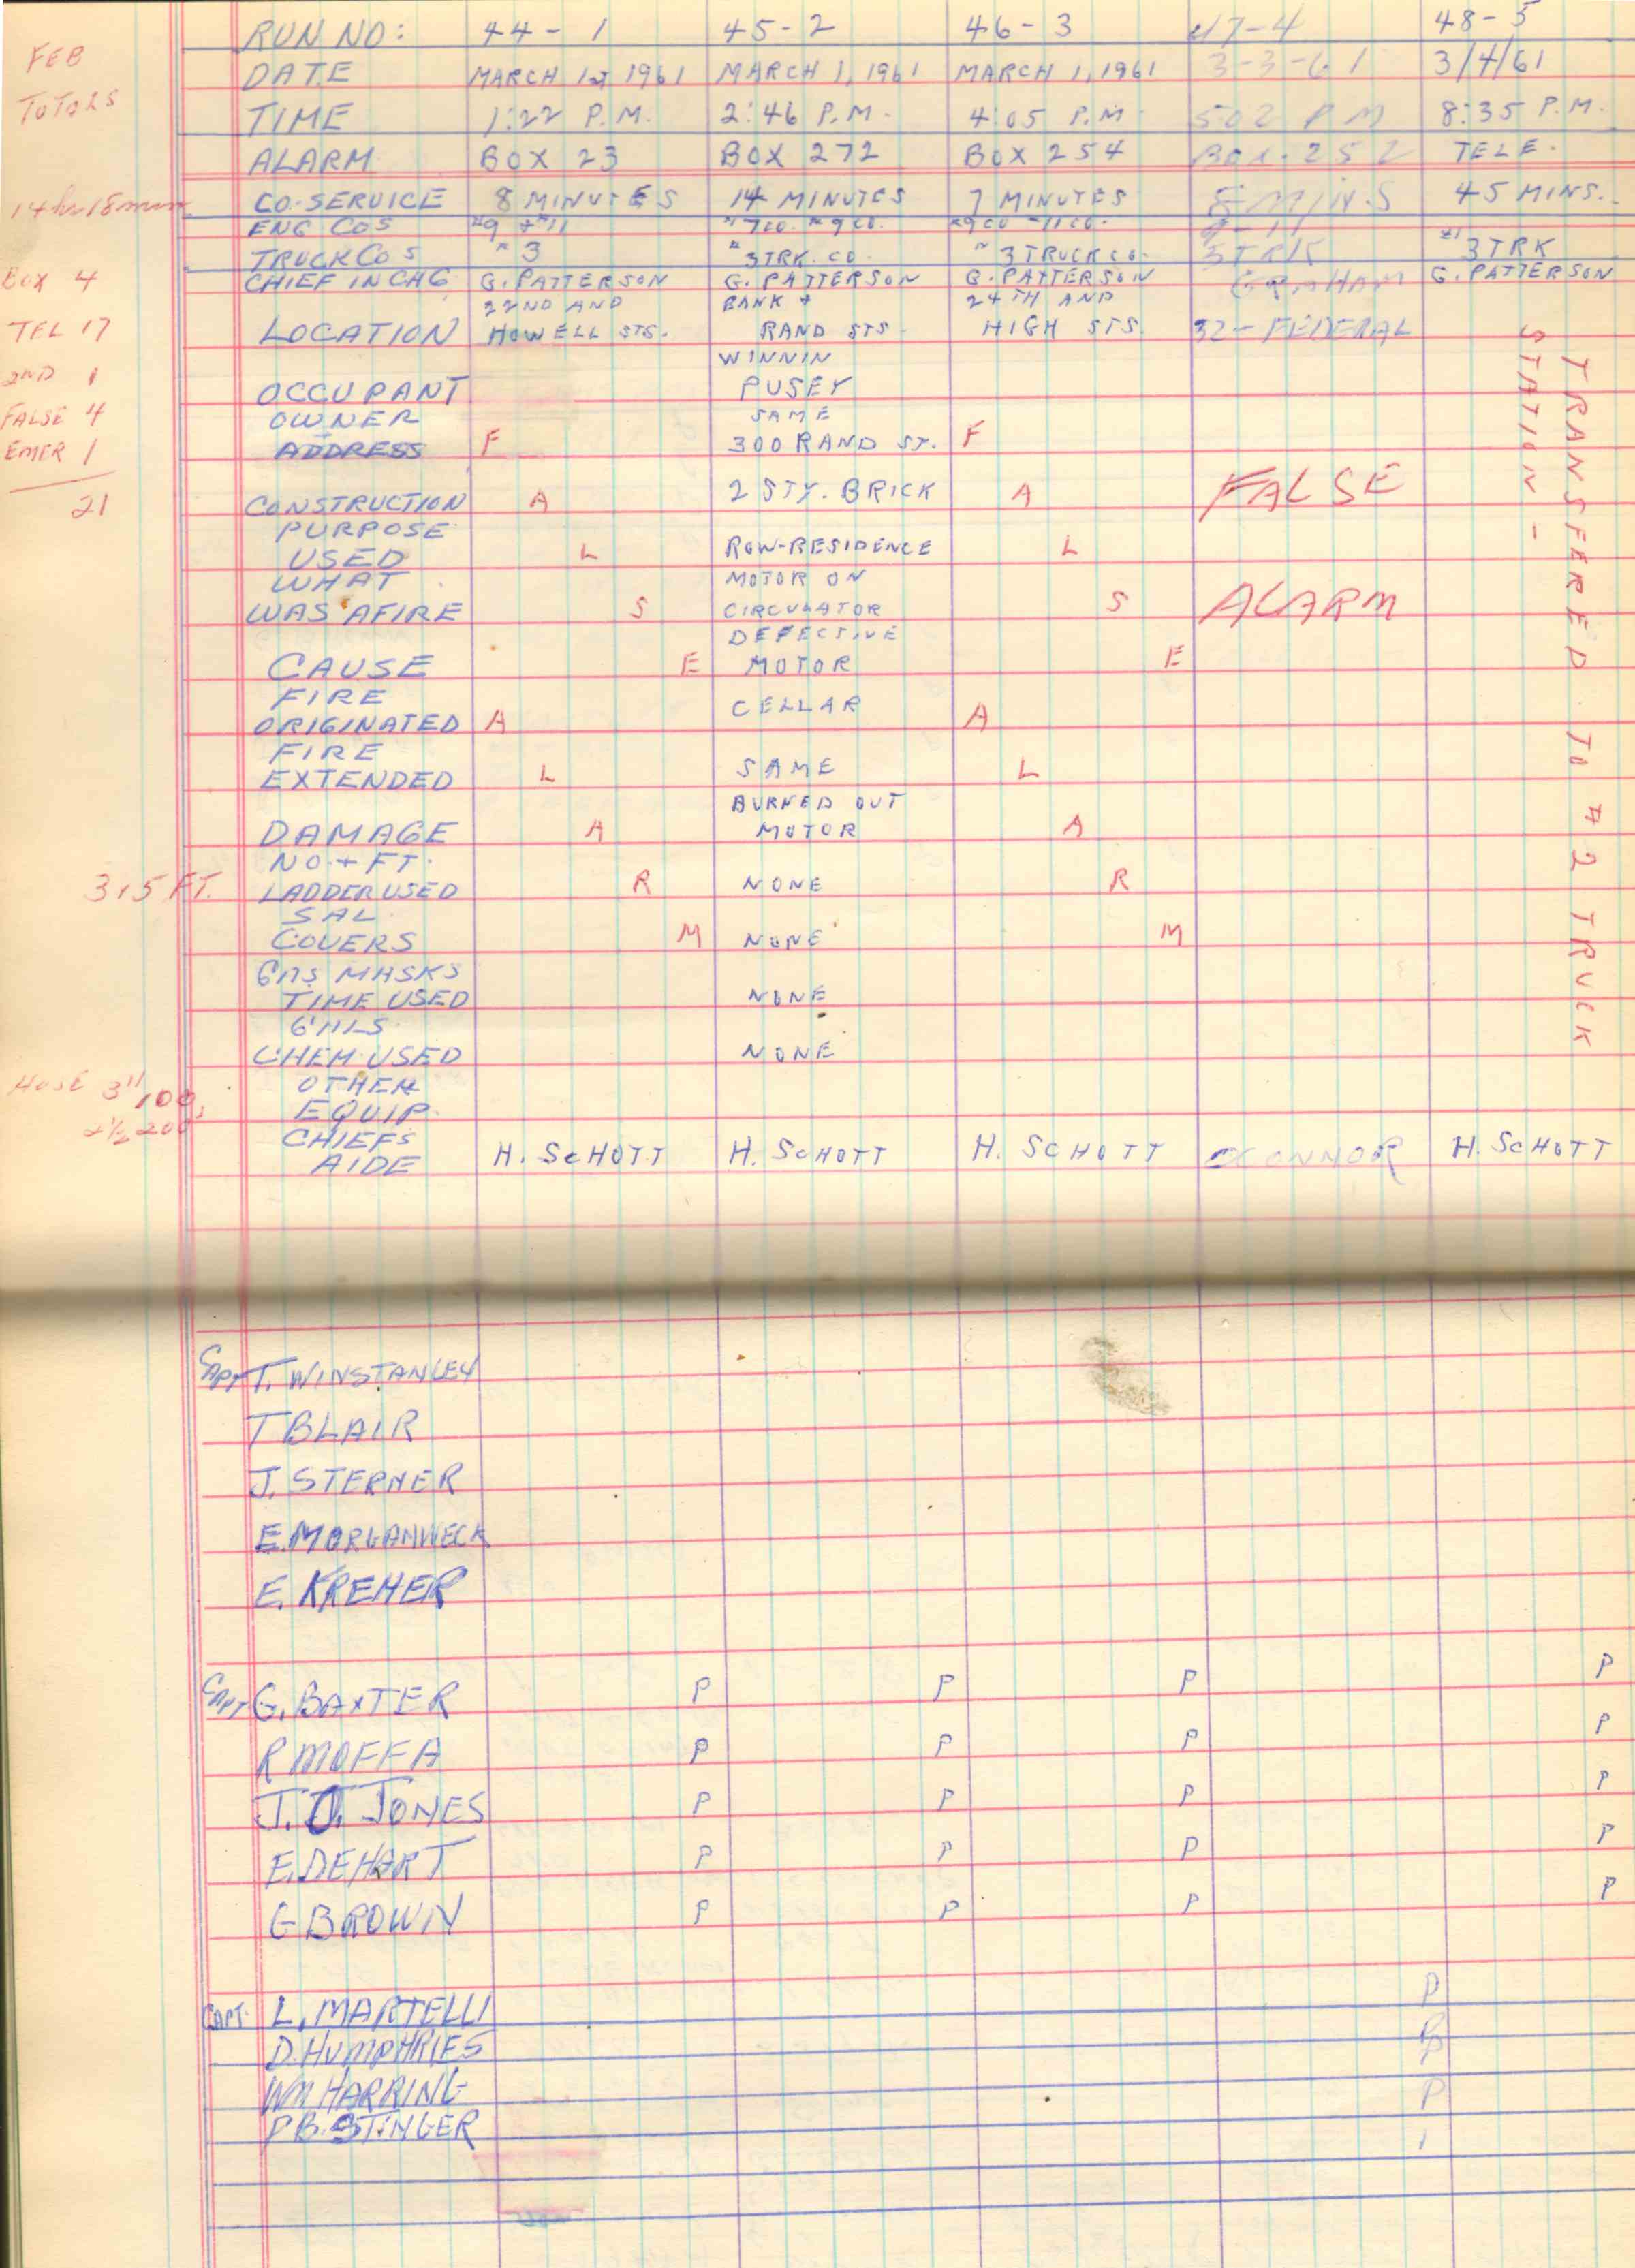 FEB
TOTALS
14 hr 18 min
BOX 4
TEL 17
2ND 1
FALSE 4
EMER 1
21
315 FT.
HOSE 3" 100,
2½ 200
RUN NO: 44-1 45-2 46-3 47-4 48-5
DATE MARCH 1st 1961 MARCH 1, 1961 MARCH 1, 1961 3-3-61 3/4/61
TIME 1:22 P.M. 2:46 P.M. 4:05 P.M. 502 PM 8:35 P.M.
ALARM BOX 23 BOX 272 BOX 254 BOX. 252 TELE.
CO. SERVICE 8 MINUTES 14 MINUTES 7 MINUTES 8 MINS 45 MINS.
ENG COS #9 #11 #7 CO. #9 CO. #9 CO - 11 CO. 9-11
TRUCK COS #3 #3 TRK. CO. #3 TRUCK CO. 3 TRK #3 TRK
CHIEF IN CHG G. PATTERSON G. PATTERSON G. PATTERSON GRAHAM G. PATTERSON
22ND AND BANK + 24TH AND
LOCATION HOWELL STS. RAND STS. HIGH STS. 32-FEDERAL
WINNIN
OCCUPANT PUSEY
OWNER SAME
ADDRESS F 300 RAND ST. F
CONSTRUCTION A 2 STY. BRICK A FALSE
PURPOSE
USED L ROW-RESIDENCE L
WHAT MOTOR ON
WAS AFIRE S CIRCULATOR S ALARM
DEFECTIVE
CAUSE E MOTOR E
FIRE
ORIGINATED A CELLAR A
FIRE
EXTENDED L SAME L
BURNED OUT
DAMAGE A MOTOR A
NO. + FT.
LADDER USED R NONE R
SAL.
COVERS M NONE M
GAS MASKS
TIME USED NONE
GALS
CHEM. USED NONE
OTHER
EQUIP.
CHIEFS
AIDE H. SCHOTT H. SCHOTT H. SCHOTT OCONNOR H. SCHOTT
TRANSFERED TO #2 TRUCK
STATION -
CAPT T. WINSTANLEY
T BLAIR
J. STERNER
E. MORGANWECK
E. KREMER
CAPT G. BAXTER P P P P
R MOFFA P P P P
J. O. JONES P P P P
E. DEHART P P P P
G BROWN P P P P
CAPT. L. MARTELLI P
D. HUMPHRIES P
WM HARRING P
P B. STINGER